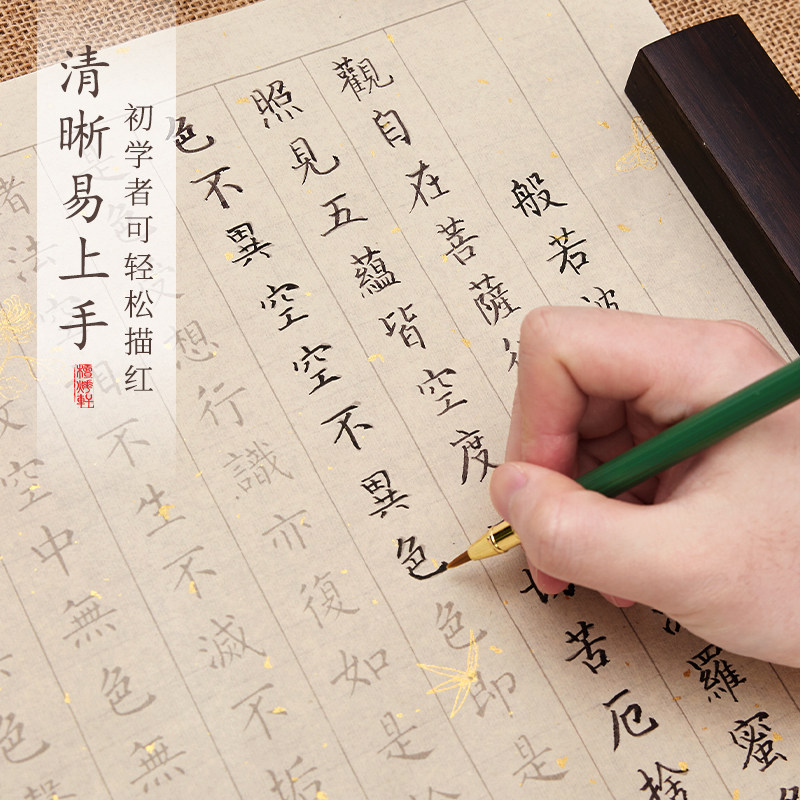 清晰易上手
初学者可轻松描红
般若波
觀自在菩薩行羅蜜
照見五蘊皆空度切苦厄捨
色不異空空不異色色即是
是色受想行識亦復如是
法空相不生不滅不垢
空中無色無
色聲